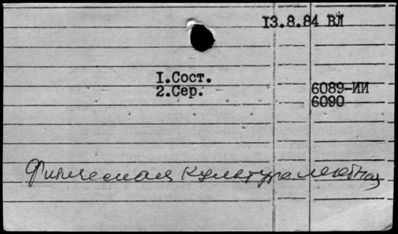 13.8.84 ВЛ
1.Сост.
2.Сер.
6089-ИИ
6090
Физическая культура